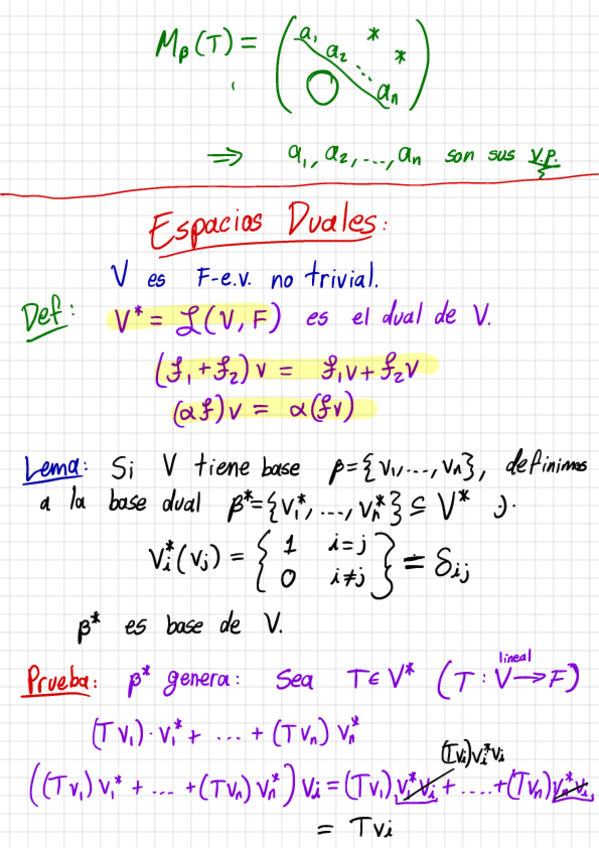 M_β(T) = ( a₁ a₂ ... aₙ * * 0 )
⇒ a₁, a₂, ..., aₙ son sus V.P.
Espacios Duales:
V es F-e.v. no trivial.
Def: V* = ℒ(V, F) es el dual de V.
(f₁ + f₂) v = f₁v + f₂v
(αf)v = α(fv)
Lema: Si V tiene base β = {v₁, ..., vₙ}, definimos
a la base dual β* = {v₁*, ..., vₙ*} ⊆ V* ∋·
Vᵢ*(vⱼ) = { 1 i=j
0 i≠j } = δᵢⱼ
β* es base de V.
Prueba: β* genera: Sea T ∈ V* (T : V →^{lineal} F)
(Tv₁)·v₁* + ... + (Tvₙ) vₙ*
(Tvᵢ)vᵢ*vᵢ
((Tv₁)v₁* + ... + (Tvₙ)vₙ*) vᵢ = (Tv₁) v₁*vᵢ + .... + (Tvₙ)vₙ*vᵢ
= Tvᵢ